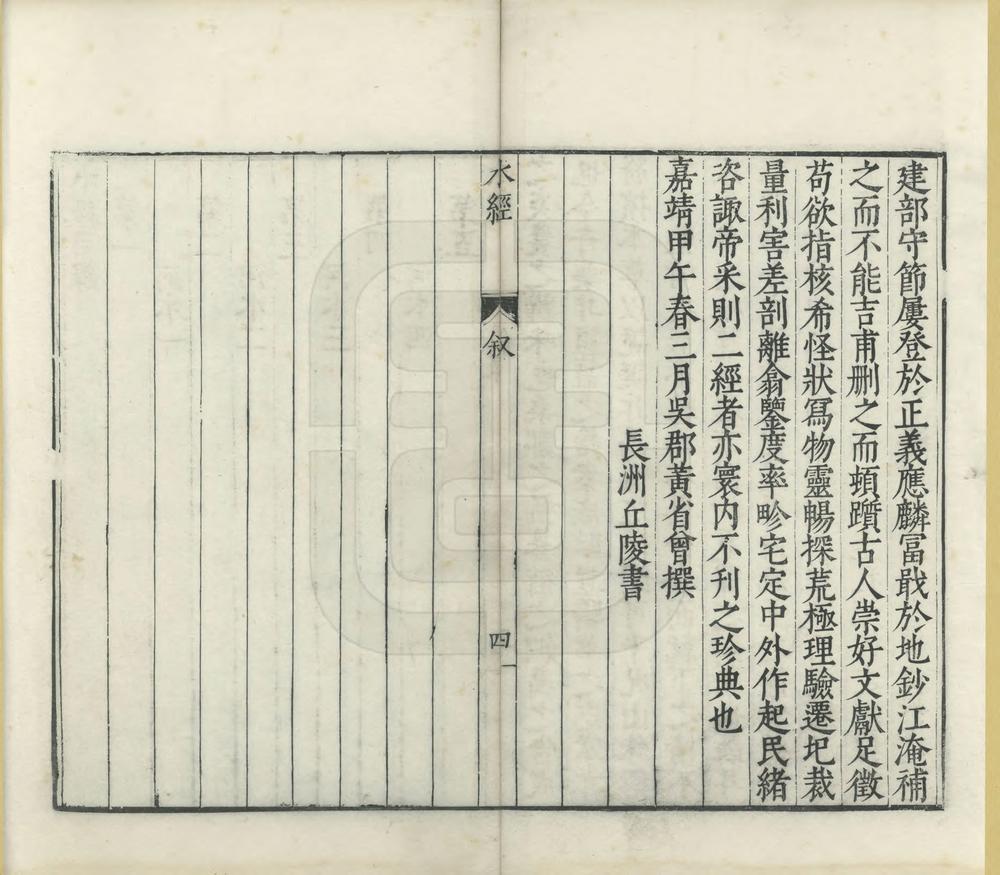 建部守節屢登於正義應麟冨戢於地鈔江淹補
之而不能吉甫删之而頓躓古人崇好文獻足徵
苟欲指核希怪狀冩物靈暢探荒極理驗遷圯裁
量利害差剖離翕鑒度率畛宅定中外作起民緒
咨諏帝采則二經者亦寰内不刋之珍典也
嘉靖甲午春三月吳郡黃省曾撰
長洲丘陵書
水經
叙
四